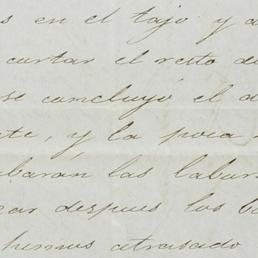 s en el tajo y a
cortar el resto de
se concluyó el d
te, y la poca
barán las labor
ar despues los b
hemos atrasado